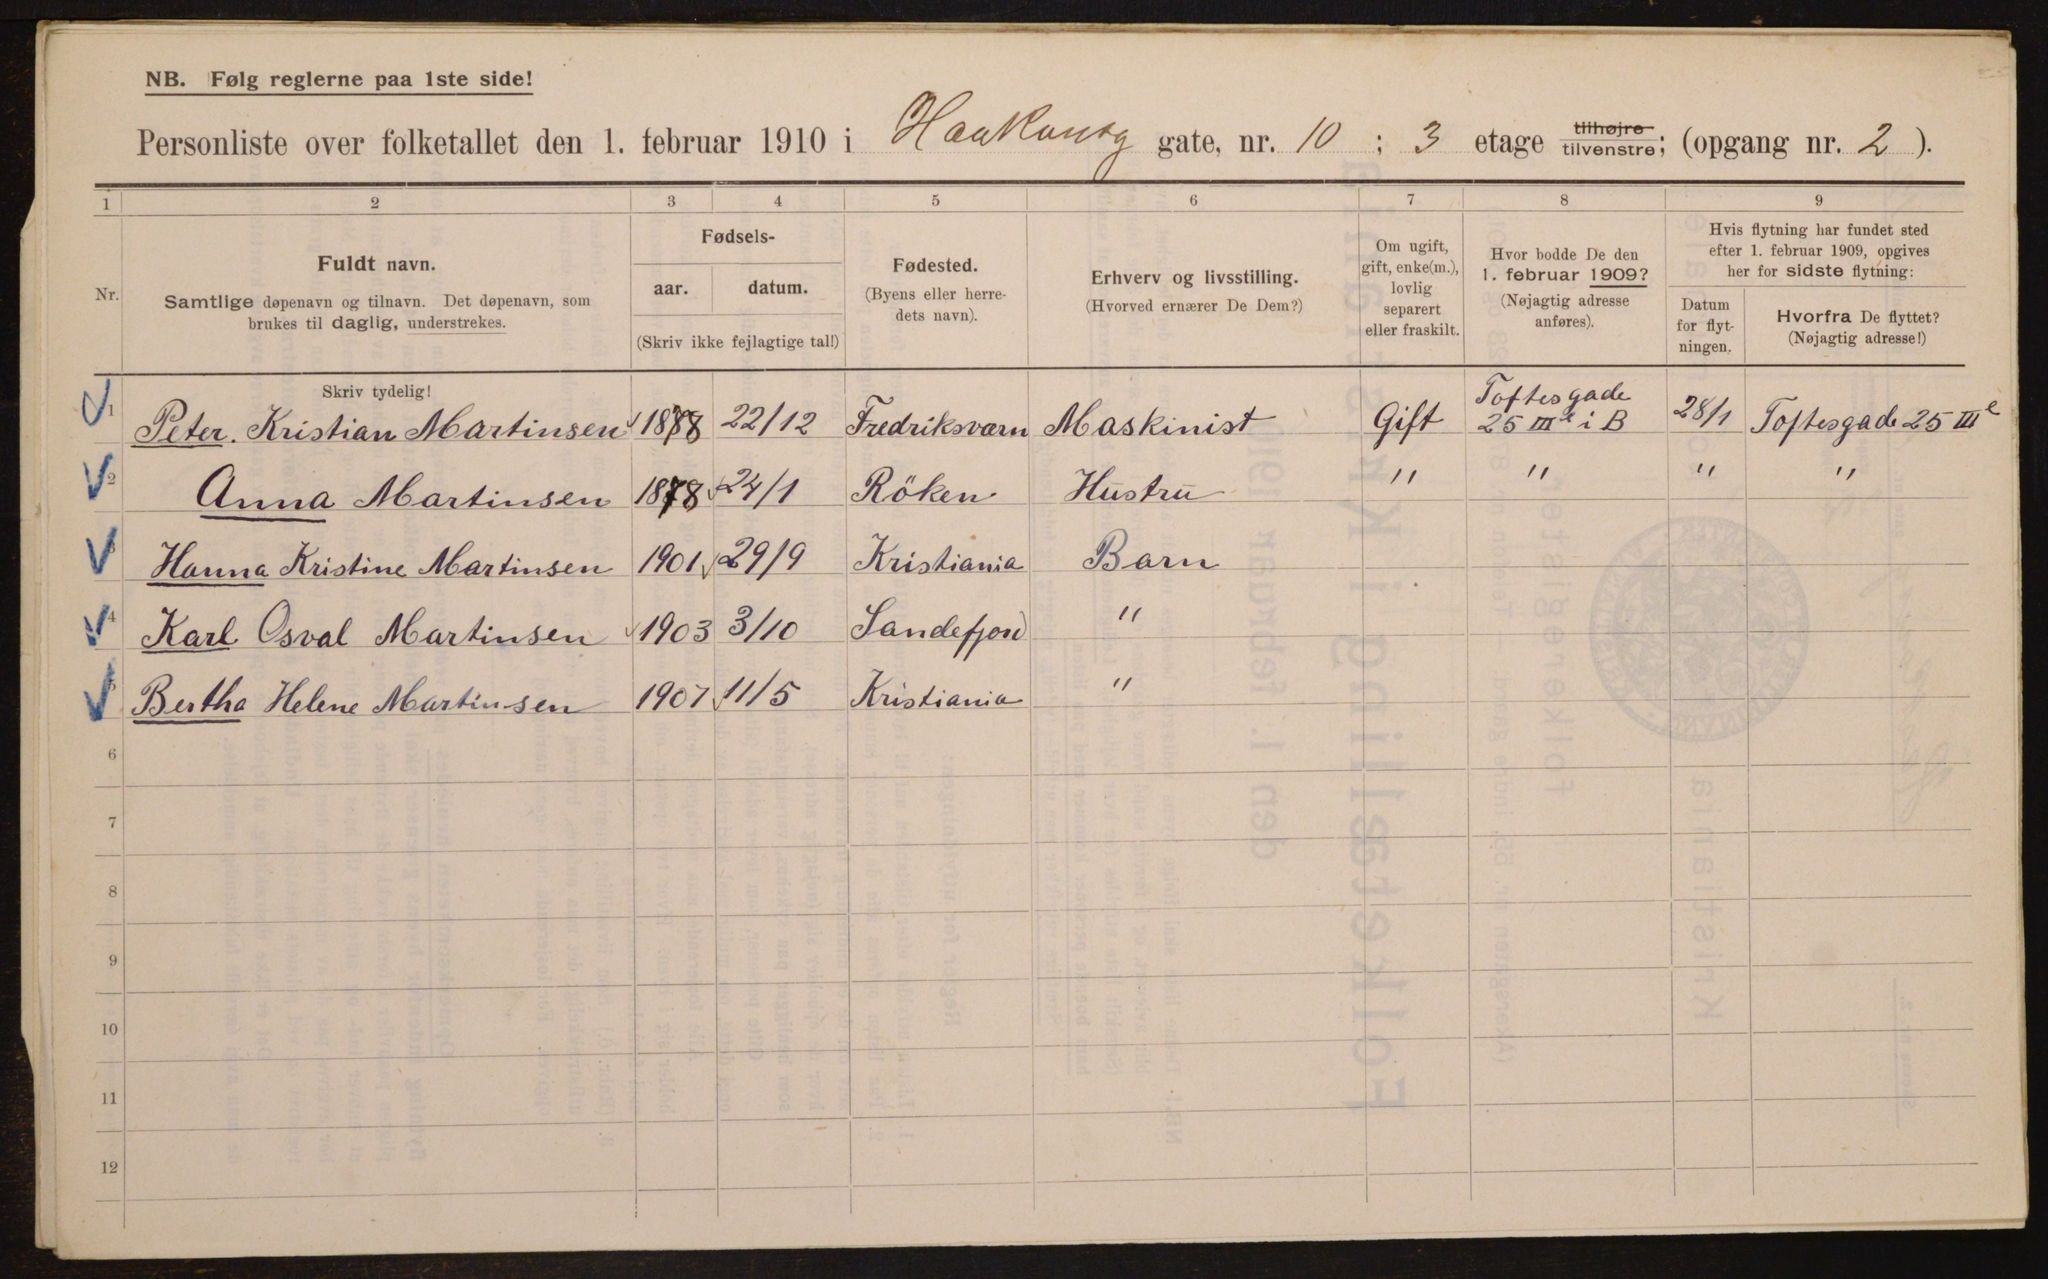 NB. Følg reglerne paa 1ste side!
Personliste over folketallet den 1. februar 1910 i Haakonsg gate, nr. 10 ; 3 etage tilhøjre tilvenstre; (opgang nr. 2 ).
1 2 3 4 5 6 7 8 9
Nr.
Fuldt navn.
Samtlige døpenavn og tilnavn. Det døpenavn, som
brukes til daglig, understrekes.
Fødsels-
aar. datum.
(Skriv ikke fejlagtige tal!)
Fødested.
(Byens eller herre-
dets navn).
Erhverv og livsstilling.
(Hvorved ernærer De Dem?)
Om ugift,
gift, enke(m.),
lovlig
separert
eller fraskilt.
Hvor bodde De den
1. februar 1909?
(Nøjagtig adresse
anføres).
Hvis flytning har fundet sted
efter 1. februar 1909, opgives
her for sidste flytning:
Datum
for flyt-
ningen.
Hvorfra De flyttet?
(Nøjagtig adresse!)
Skriv tydelig!
1 Peter Kristian Martinsen 1878 22/12 Fredriksværn Maskinist Gift Toftesgade 25 III e i B 28/1 Toftesgade 25 III e
2 Anna Martinsen 1878 24/1 Röken Hustru " " " "
3 Hanna Kristine Martinsen 1901 29/9 Kristiania Barn
4 Karl Osval Martinsen 1903 3/10 Sandefjord "
5 Bertha Helene Martinsen 1907 11/5 Kristiania "
6
7
8
9
10
11
12